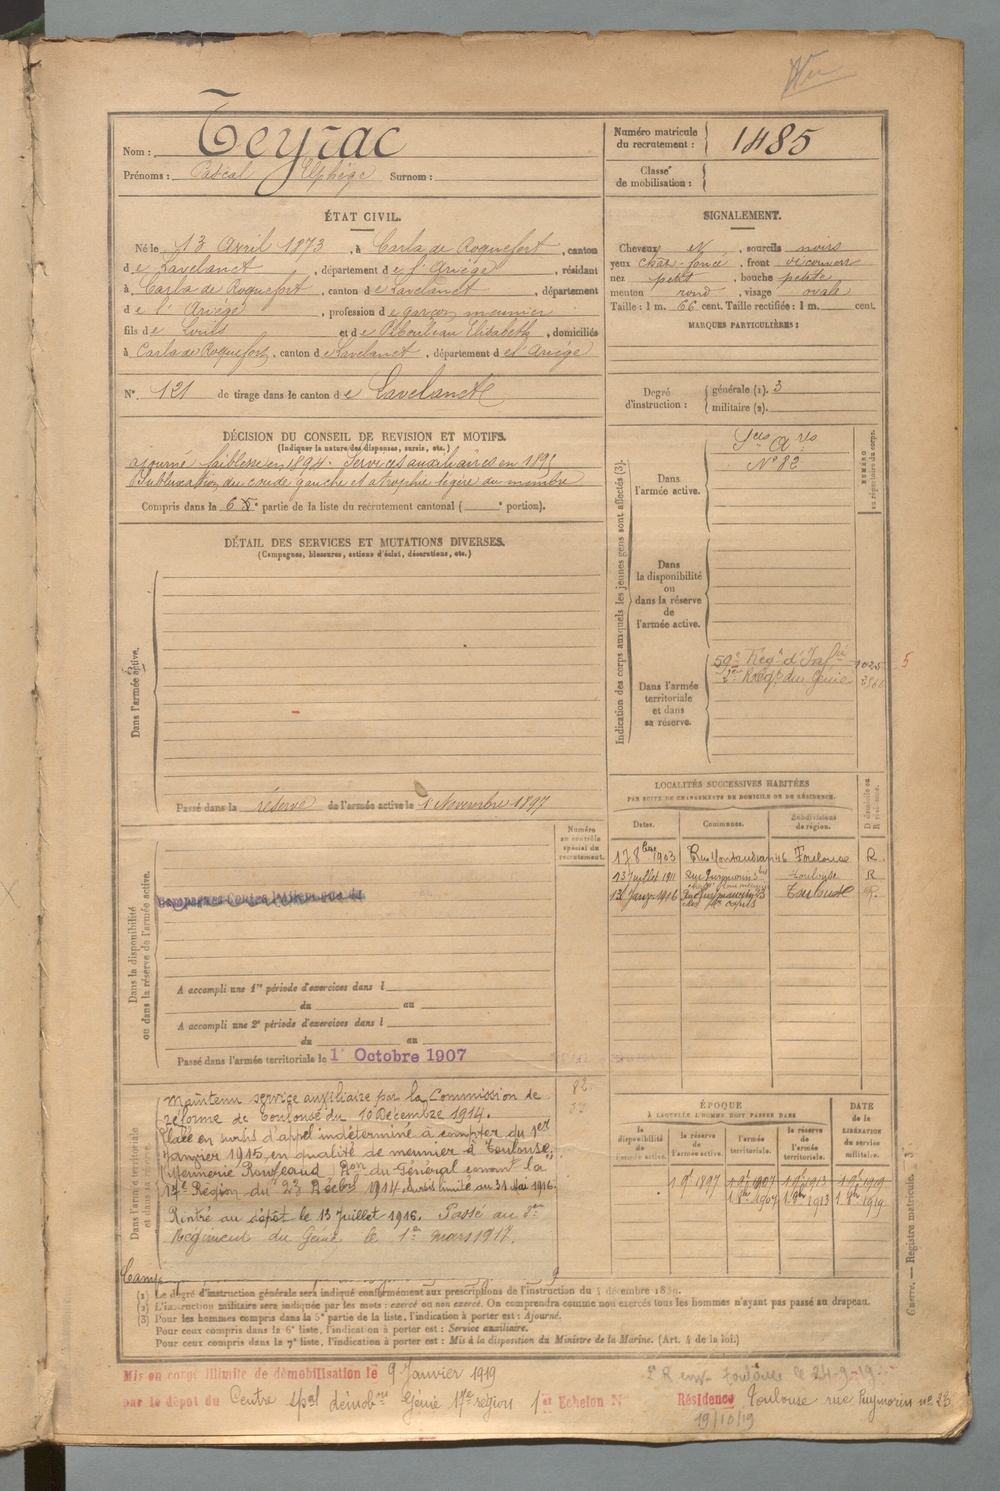 Nom : Teyrac
Prénoms : Pascal Elphège Surnom :
Numéro matricule du recrutement : 1485
Classe de mobilisation :
ÉTAT CIVIL.
Né le 13 Avril 1873, à Carla de Roquefort, canton
de Lavelanet, département de l'Ariège, résidant
à Carla de Roquefort, canton de Lavelanet, département
de l'Ariège, profession de garçon meunier
fils de Louis et de Elisabeth, domiciliés
à Carla de Roquefort, canton de Lavelanet, département de l'Ariège
N° 121 de tirage dans le canton de Lavelanet
SIGNALEMENT.
Cheveux N, sourcils noirs
yeux chat. foncé, front découvert
nez petit, bouche petite
menton rond, visage ovale
Taille : 1 m. 66 cent. Taille rectifiée : 1 m. cent.
MARQUES PARTICULIÈRES :
Degré d'instruction : générale (1). 3
militaire (2).
DÉCISION DU CONSEIL DE REVISION ET MOTIFS.
(Indiquer la nature des dispenses, sursis, etc.)
ajourné faiblesse en 1894. Services auxiliaires en 1895
Subluxation du coude gauche et atrophie légère du membre
Compris dans la 6e partie de la liste du recrutement cantonal ( e portion).
DÉTAIL DES SERVICES ET MUTATIONS DIVERSES.
(Campagnes, blessures, actions d'éclat, décorations, etc.)
Dans l'armée active.
Passé dans la réserve de l'armée active le 1 Novembre 1897
Indication des corps auxquels les jeunes gens sont affectés (3).
NUMÉRO au répertoire du corps.
Dans l'armée active.
Sces Ares
N° 82
Dans la disponibilité ou dans la réserve de l'armée active.
Dans l'armée territoriale et dans sa réserve.
59e Regt d'Infie 1025 5
2e Regt du Génie
LOCALITÉS SUCCESSIVES HABITÉES
PAR SUITE DE CHANGEMENTS DE DOMICILE OU DE RÉSIDENCE.
Dates. Communes. Subdivisions de région. D domicile ou R résidence.
17 8bre 1903 Rue Montaudran 46 Toulouse R
13 Juillet 1911 Toulouse R
13 Janv. 1916 Toulouse R.
Numéro au contrôle spécial du recrutement.
Dans la disponibilité ou dans la réserve de l'armée active.
Campagnes Contre l'Allemagne du
A accompli une 1re période d'exercices dans l
du au
A accompli une 2e période d'exercices dans l
du au
Passé dans l'armée territoriale le 1er Octobre 1907
Dans l'armée territoriale et dans sa réserve
Maintenu service auxiliaire par la Commission de
réforme de Toulouse du 10 Décembre 1914.
Placé en sursis d'appel indéterminé à compter du 1er
Janvier 1915 en qualité de meunier à Toulouse,
Minoterie Rougeaud Don du Général comant la
17e Région du 23 Décbre 1914 sursis limité au 31 Mai 1916.
Rentré au dépôt le 13 Juillet 1916. Passé au 2e
Régiment du Génie le 1er mars 1917.
Camp
ÉPOQUE
À LAQUELLE L'HOMME DOIT PASSER DANS
la disponibilité de l'armée active. la réserve de l'armée active. l'armée territoriale. la réserve de l'armée territoriale. DATE de la LIBÉRATION du service militaire.
1 9bre 1897 1 9bre 1907 1 9bre 1913 1 9bre 1919
1 8bre 1907 1 8bre 1913 1 8bre 1919
Guerre. — Registre matricule. — 3
(1) Le degré d'instruction générale sera indiqué conformément aux prescriptions de l'instruction du 5 décembre 1889.
(2) L'instruction militaire sera indiquée par les mots : exercé ou non exercé. On comprendra comme non exercés tous les hommes n'ayant pas passé au drapeau.
(3) Pour les hommes compris dans la 5e partie de la liste, l'indication à porter est : Ajourné.
Pour ceux compris dans la 6e liste, l'indication à porter est : Service auxiliaire.
Pour ceux compris dans la 7e liste, l'indication à porter est : Mis à la disposition du Ministre de la Marine. (Art. 4 de la loi.)
Mis en congé illimité de démobilisation le 9 Janvier 1919
par le dépôt du Centre spal démobon Génie 17e région 1er Echelon N°
Résidence Toulouse rue Puymorin n° 23
19/10/19